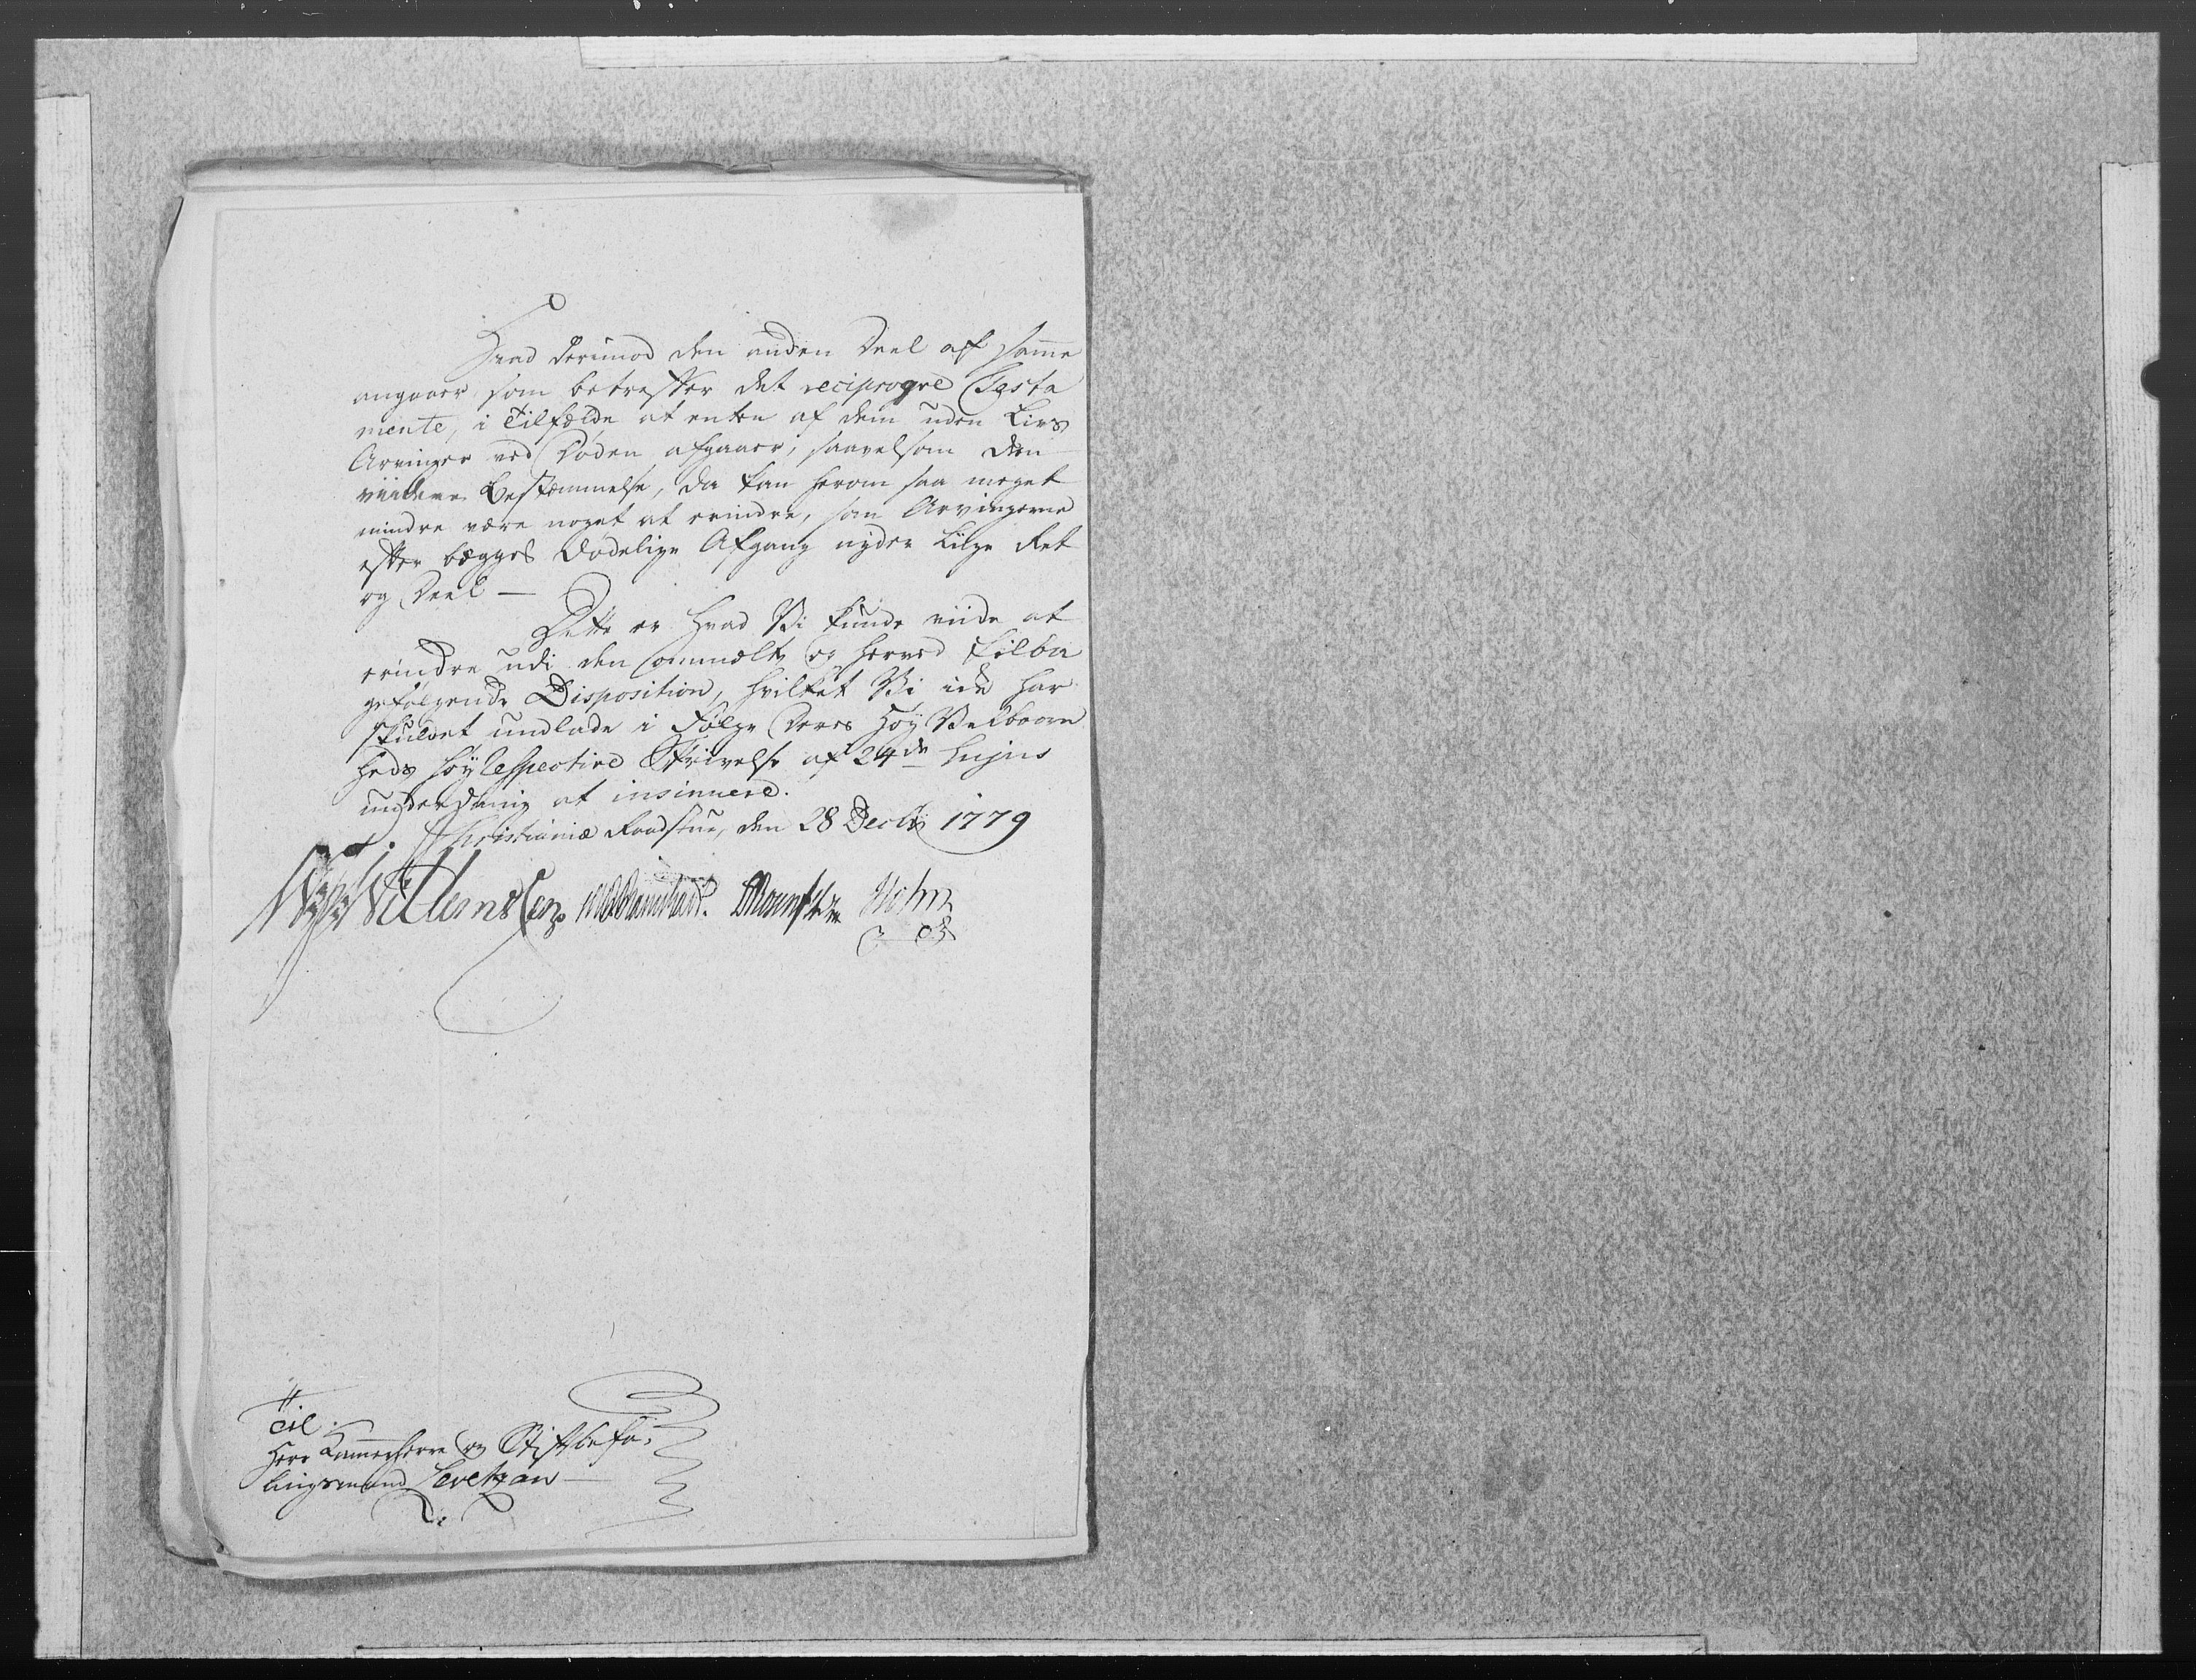 Hvad derimod den anden Deel af samme
angaaer, som betreffer det reciproqve Testa
mente, i Tilfælde at enten af dem uden Livs
Arvinger ved Døden afgaaer, saavelsom den
viidere Bestemmelse, da kan herom saa meget
mindre være noget at erindre, som Arvingerne
efter begges dødelige Afgang nyder liige Ret
og Deel —
Dette er hvad Vi kunde viide at
erindre udi den ommelte og herved tilba
gefølgende Disposition, hvilket Vi icke har
skuldet undlade i Følge Deres Høy Velbaaren
heds høyrespective Skrivelse af 24de hujus
underdanig at insinuere.
Christiania Raadstue, den 28 Decbr 1779
Willemssen Holm
Til
Herr Kammerherre og Stiftbefa,
lingsmand Levetzau —